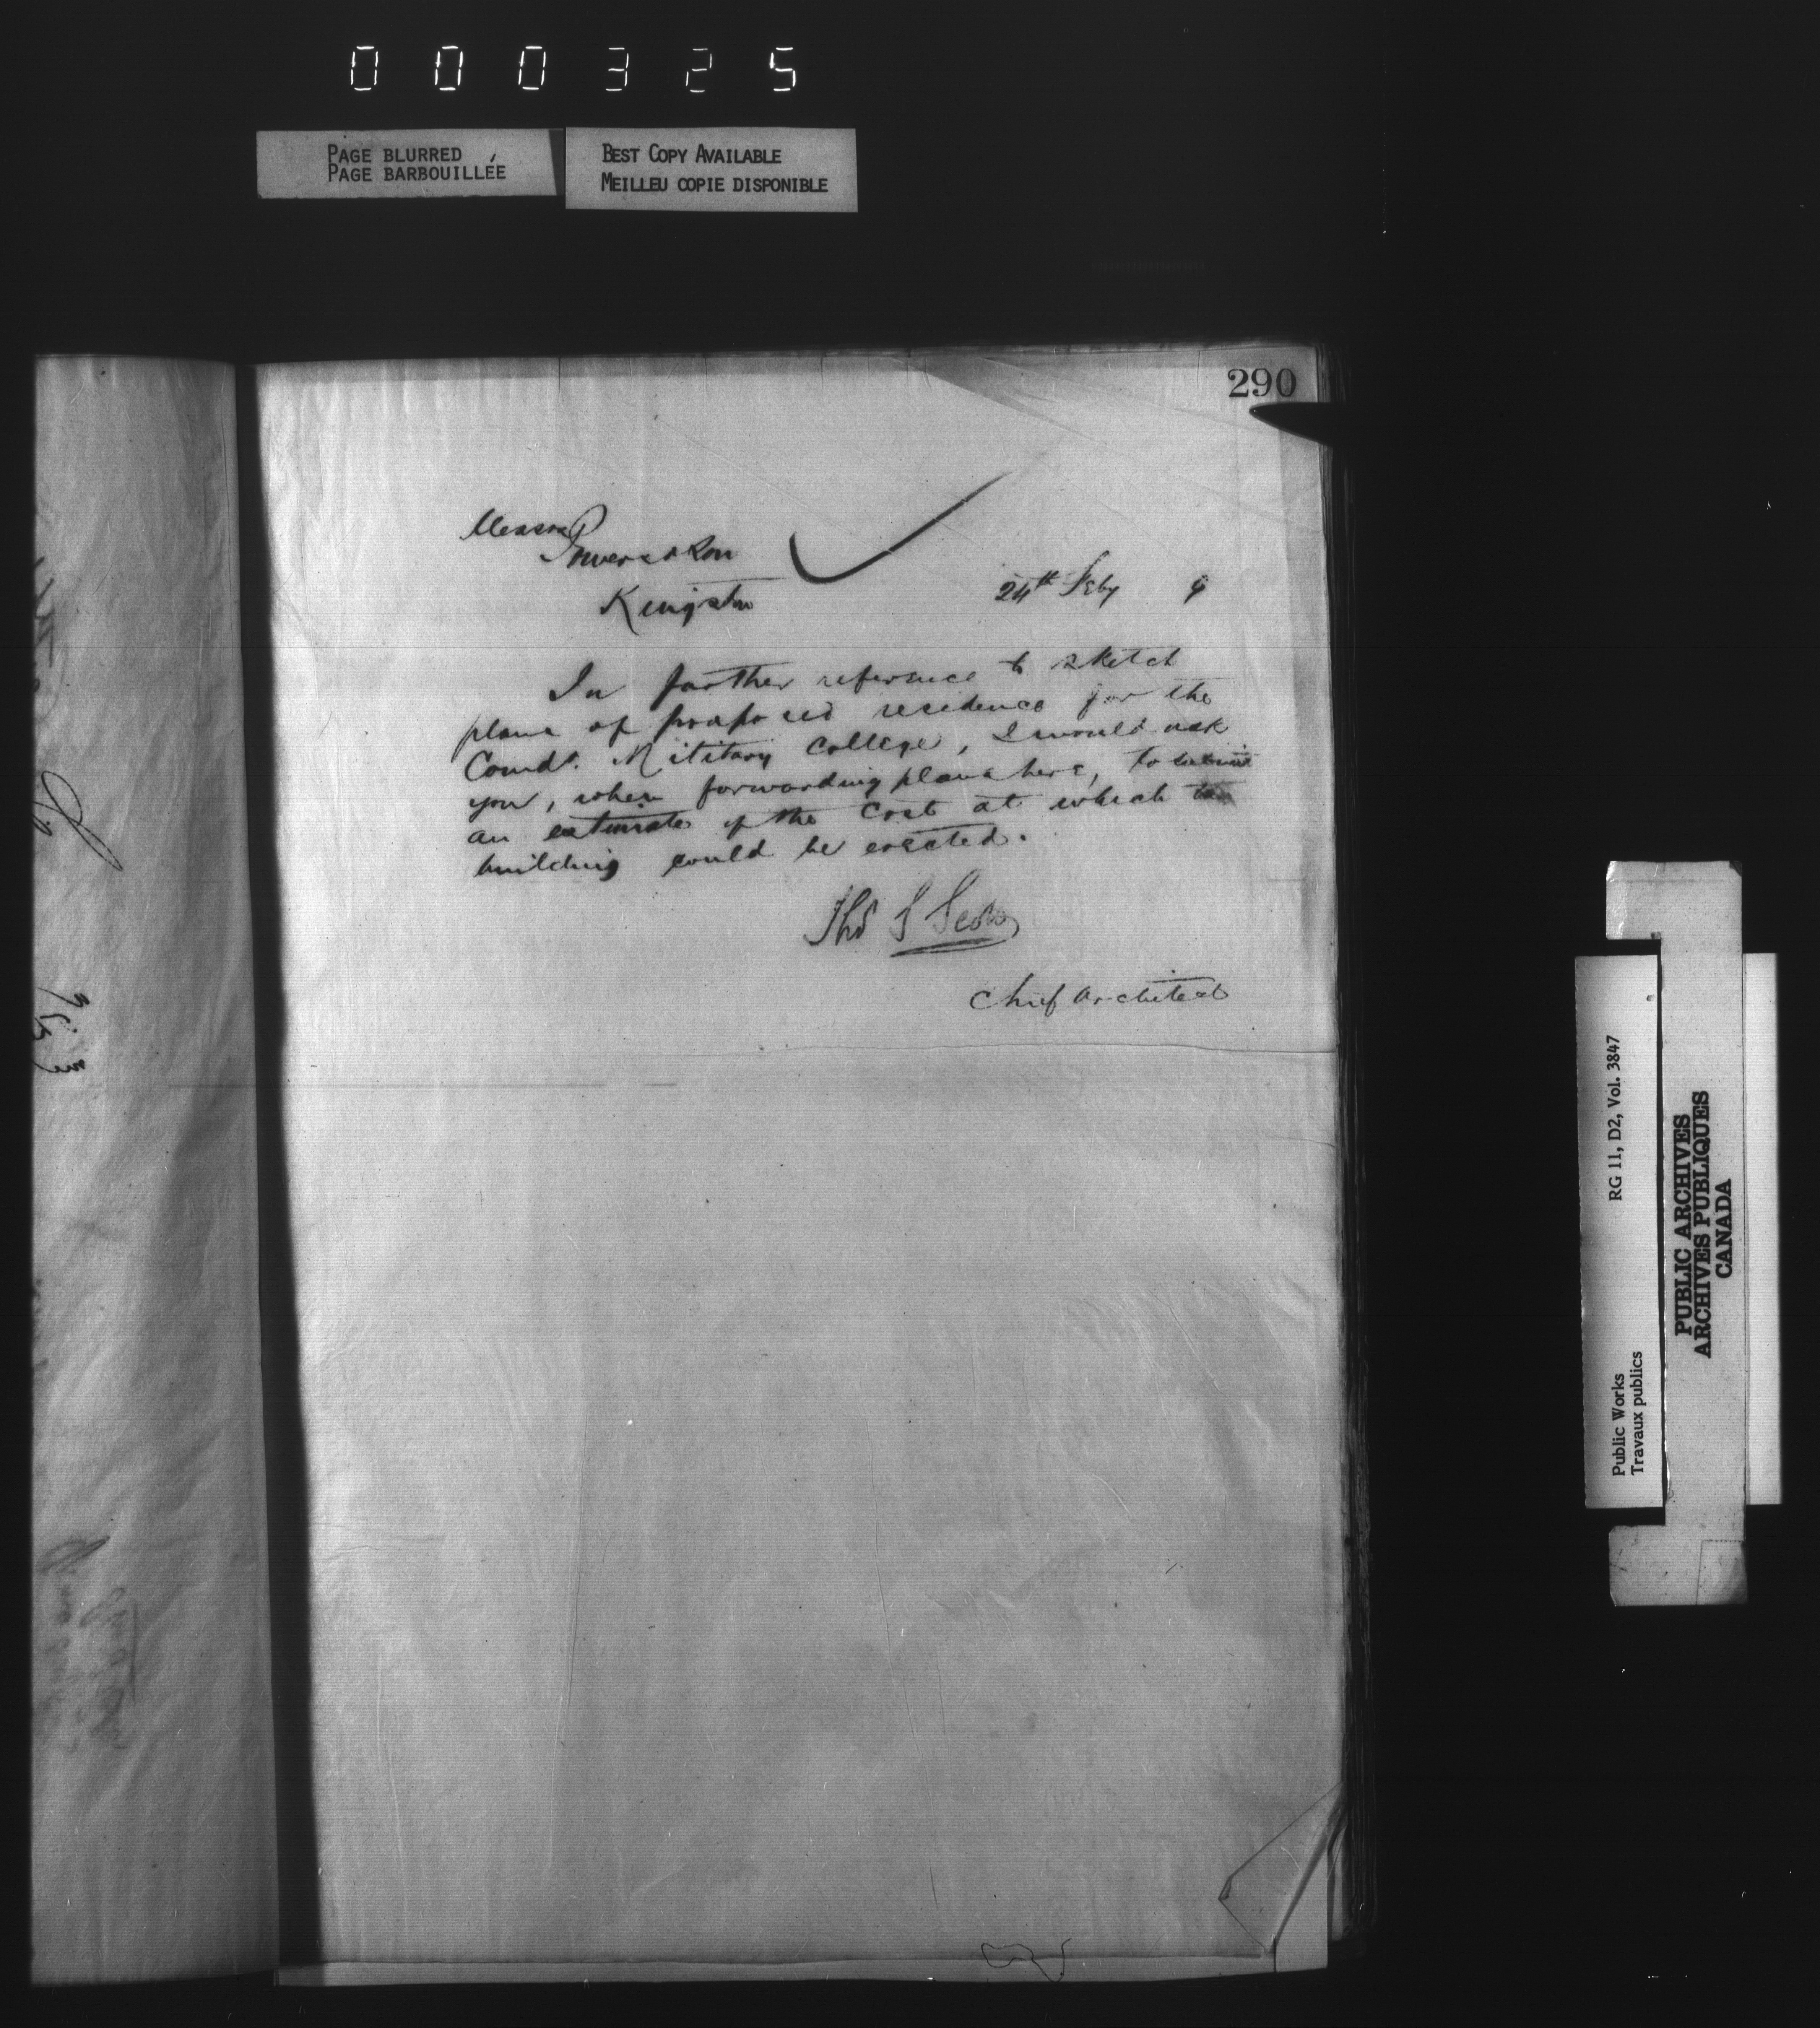 000325
PAGE BLURRED
PAGE BARBOUILLÉE
BEST COPY AVAILABLE
MEILLEU COPIE DISPONIBLE
290
Messrs
Power & Son
Kingston
24th Feby 9
In further reference to sketch
plans of proposed residence for the
Comdt. Military College, I would ask
you, when forwarding plans here, to submit
an estimate of the cost at which the
building could be erected.
Thos S Scott
Chief Architect
RG 11, D2, Vol. 3847
Public Works
Travaux publics
PUBLIC ARCHIVES
ARCHIVES PUBLIQUES
CANADA